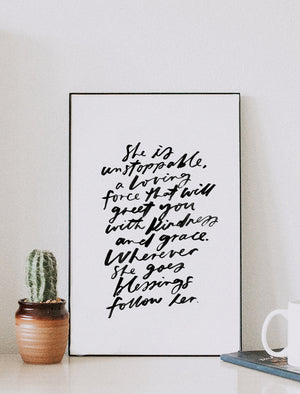 She is
unstoppable,
a loving
force that will
greet you
with kindness
and grace.
Wherever
she goes
blessings
follow her.